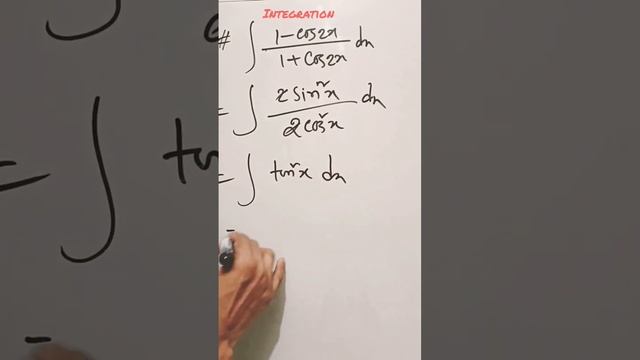 INTEGRATION
# ∫ 1-cos2x / 1+cos2x dx
= ∫ 2 sin²x / 2 cos²x dx
= ∫ tan²x dx
-